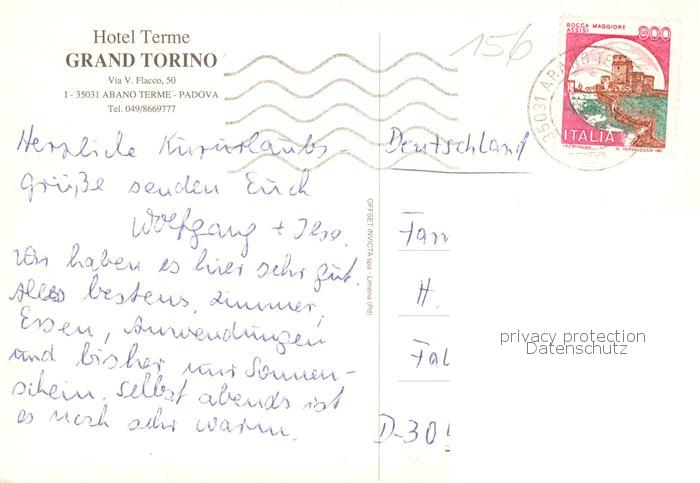 Hotel Terme
GRAND TORINO
Via V. Flacco, 50
I - 35031 ABANO TERME - PADOVA
Tel. 049/8669777
156
ROCCA MAGGIORE
ASSISI
800
ITALIA
35031 ABANO
Herzliche Kururlaubs-
grüße senden Euch
Wolfgang + Ilse.
Wir haben es hier sehr gut.
Alles bestens, Zimmer,
Essen, Anwendungen
und bisher nur Sonnen-
schein. Selbst abends ist
es noch sehr warm.
OFFSET INVICTA spa - Limena (Pd)
Deutschland
Fam
H.
Fal
D-304
privacy protection
Datenschutz